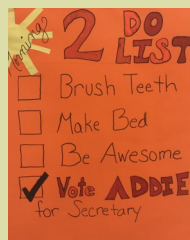 Morning
2 DO
LIST
Brush Teeth
Make Bed
Be Awesome
Vote ADDIE
for Secretary